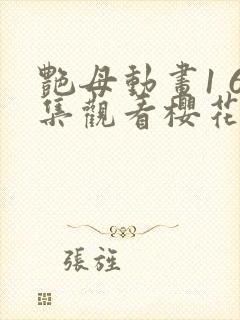 艷母動畫16
集觀看櫻花
張旌